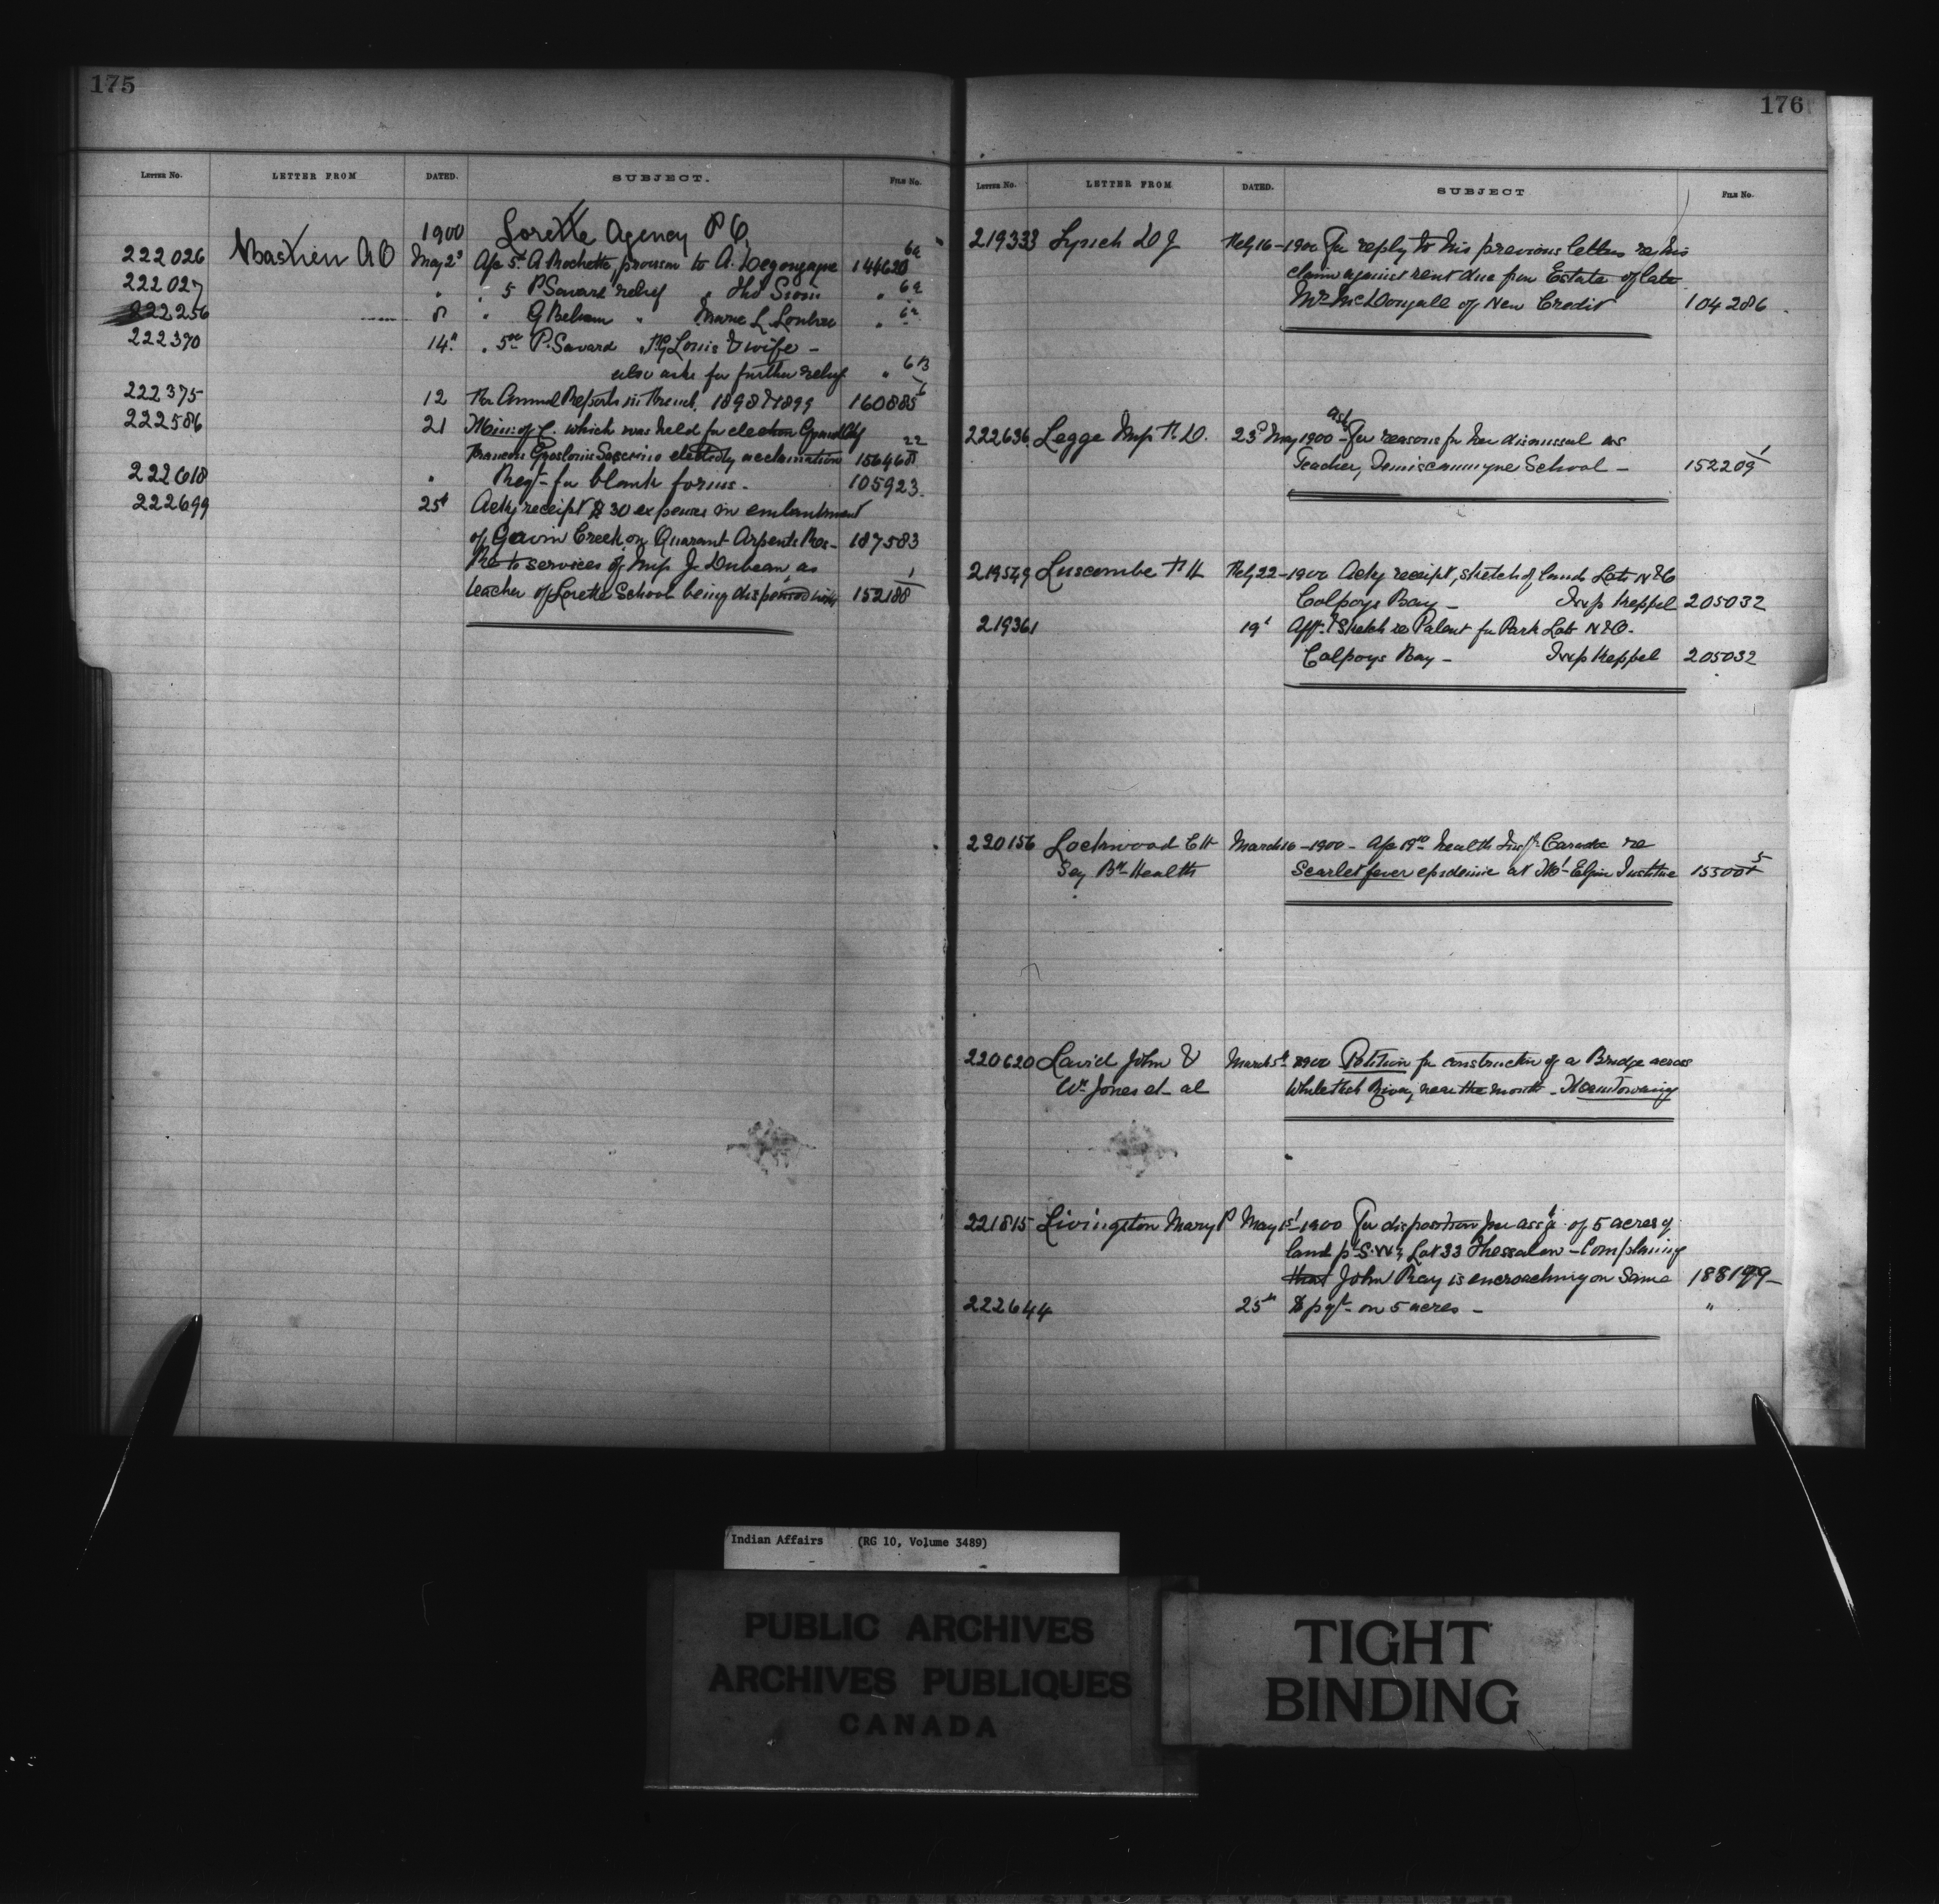 175
LETTER NO. LETTER FROM DATED. SUBJECT. FILE NO.
1900 Lorette Agency P Q
222026 Bastien A O May 2d Ap 5t A Rochette, provision to A. Degonzague 144620 6a
222027 " " 5 P Savard relief " Tho Sioui " 6a
222256 8 " G Beleau " Marie L " 6a
222390 14th " 5ac P. Savard " Louis & wife -
also asks for further relief " 6B
222375 12 For Annual Reports in French, 1898 & 1899 160885
222586 21 Min: of C. which was held for election Grand Chf
Francois Groslouis elected by acclamation 156468 22
222618 " Reqn for blank forms. - 105923
222699 25t Ackg receipt $30 expenses in embankment
of Creek on Quarant Arpents Res - 187583
Re to services of Miss J Dubeau as
teacher of Lorette School being dispensed with 152188 1
176
LETTER NO. LETTER FROM DATED. SUBJECT FILE NO.
219333 Lynch D J Feby 16-1900 For reply to his previous letters re his
claim against rent due from Estate of late
Mr McDougall of New Credit 104286
222636 Legge Miss F. D. 23d May 1900 - ask For reasons for her dismissal as
Teacher, Temiscamingue School - 152209 1
219549 Luscombe F H Feby 22-1900 Ackg receipt, sketch of land Lots N & O
Colpoys Bay - Twp Keppel 205032
219361 19t Afft & Sketch re Patent for Park Lots N & O.
Colpoys Bay - Twp Keppel 205032
220156 Lockwood C H March 16-1900 - health Caradoc re
Secy Bd Health Scarlet fever epidemic at Mt Elgin Institute 155004 5
220620 David John & March 5th 1900 Petition for construction of a Bridge across
Wm Jones et al Whitefish River, near the mouth -
221815 Livingston Mary P May 1st-1900 For disposition her assgt of 5 acres of
land pt S.W¼ Lot 33 Thessalon - Complaining
that John Ray is encroaching on Same 188199 -
222644 25th $ pgt on 5 acres - "
Indian Affairs (RG 10, Volume 3489)
PUBLIC ARCHIVES
ARCHIVES PUBLIQUES
CANADA
TIGHT
BINDING